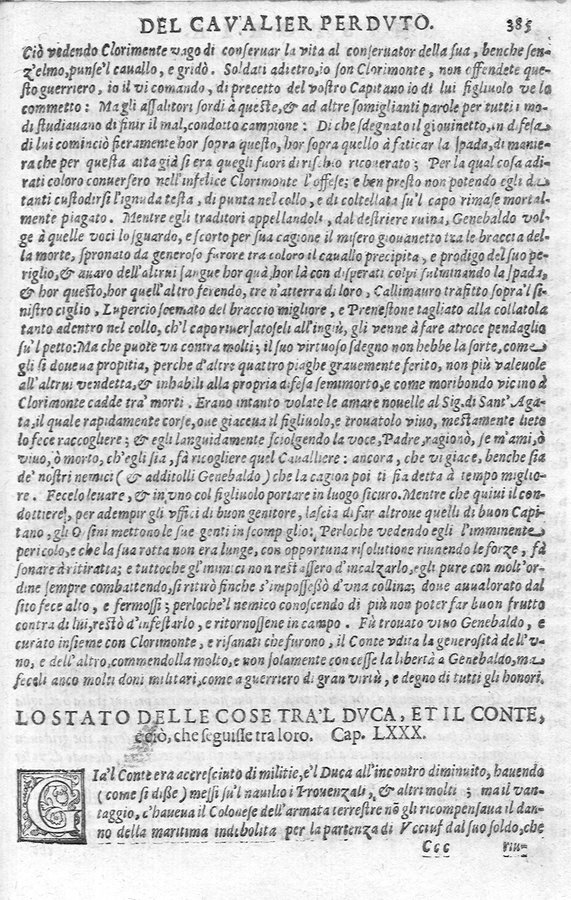 DEL CAVALIER PERDVTO. 385
Ciò vedendo Clorimente vago di conseruar la vita al conseruator della sua, benche sen-
z'elmo, punse'l cauallo, e gridò. Soldati adietro, io son Clorimonte, non offendete que-
sto guerriero, io il vi comando, di precetto del vostro Capitano io di lui figliuolo ve lo
commetto: Ma gli assalitori sordi à queste, & ad altre somiglianti parole per tutti i mo-
di studiauano di finir il mal, condotto campione: Di che sdegnato il giouinetto, in difesa
di lui cominciò fieramente hor sopra questo, hor sopra quello à faticar la spada, di manie-
ra che per questa aita già si era quegli fuori di rischio ricouerato; Per la qual cosa adi-
rati coloro conuersero nell'infelice Clorimonte l'offese; e ben presto non potendo egli da
tanti custodirsi l'ignuda testa, di punta nel collo, e di coltellata su'l capo rimase mortal-
mente piagato. Mentre egli traditori appellandoli, dal destriere ruina, Genebaldo vol-
ge à quelle voci lo sguardo, e scorto per sua cagione il misero giouanetto tra le braccia del-
la morte, spronato da generoso furore tra coloro il cauallo precipita, e prodigo del suo pe-
riglio, & auaro dell'altrui sangue hor quà, hor là con disperati colpi fulminando la spada,
& hor questo, hor quell'altro ferendo, tre n'atterra di loro, Callimauro trafitto sopra'l si-
nistro ciglio, Lupercio scemato del braccio migliore, e Prenestone tagliato alla collatola
tanto adentro nel collo, ch'l capo riuersatoseli all'ingiù, gli venne à fare atroce pendaglio
su'l petto: Ma che puote vn contra molti; il suo virtuoso sdegno non hebbe la sorte, come
gli si doueua propitia, perche d'altre quattro piaghe grauemente ferito, non più valeuole
all'altrui vendetta, & inhabili alla propria difesa semimorto, e come moribondo vicino à
Clorimonte cadde tra' morti. Erano intanto volate le amare nouelle al Sig. di Sant'Aga-
ta, il quale rapidamente corse, oue giaceua il figliuolo, e trouatolo viuo, mestamente lieto
lo fece raccogliere; & egli languidamente sciolgendo la voce, Padre, ragionò, se m'ami, ò
viuo, ò morto, ch'egli sia, fà ricogliere quel Caualliere: ancora, che vi giace, benche sia
de' nostri nemici (& additolli Genebaldo) che la cagion poi ti sia detta à tempo miglio-
re. Fecelo leuare, & in vno col figliuolo portare in luogo sicuro. Mentre che quiui il con-
dottiere, per adempir gli vffici di buon genitore, lascia di far altroue quelli di buon Capi-
tano, gli Orsini mettono le sue genti in scompiglio: Perloche vedendo egli l'imminente
pericolo, e che la sua rotta non era lunge, con opportuna risolutione riunendo le forze, fà
sonare à ritiratta; e tuttoche gl'inimici non restassero d'incalzarlo, egli pure con molt'or-
dine sempre combattendo, si ritirò finche s'impossessò d'una collina; doue aualorato dal
sito fece alto, e fermossi; perloche'l nemico conoscendo di più non poter far buon frutto
contra di lui, restò d'infestarlo, e ritornossene in campo. Fù trouato viuo Genebaldo, e
curato insieme con Clorimonte, e risanati che furono, il Conte vdita la generosità dell'v-
no, e dell'altro, commendolla molto, e non solamente concesse la libertà a Genebaldo, ma
feceli anco molti doni militari, come a guerriero di gran virtù, e degno di tutti gli honori.
LO STATO DELLE COSE TRA'L DVCA, ET IL CONTE,
e ciò, che seguisse tra loro. Cap. LXXX.
GIa'l Conte era accresciuto di militie, e'l Duca all'incontro diminuito, hauendo
(come si disse) messi su'l nauilio i Prouenzali, & altri molti; ma il van-
taggio, c'haueua il Colonese dell'armata terrestre nō gli ricompensaua il dan-
no della maritima indibolita per la partenza di Vcciuf dal suo soldo, che
Ccc riu-